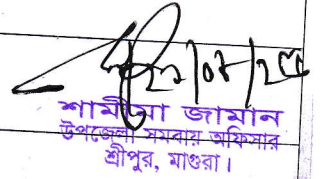 শামীমা জামান
উপজেলা সমবায় অফিসার
শ্রীপুর, মাগুরা।